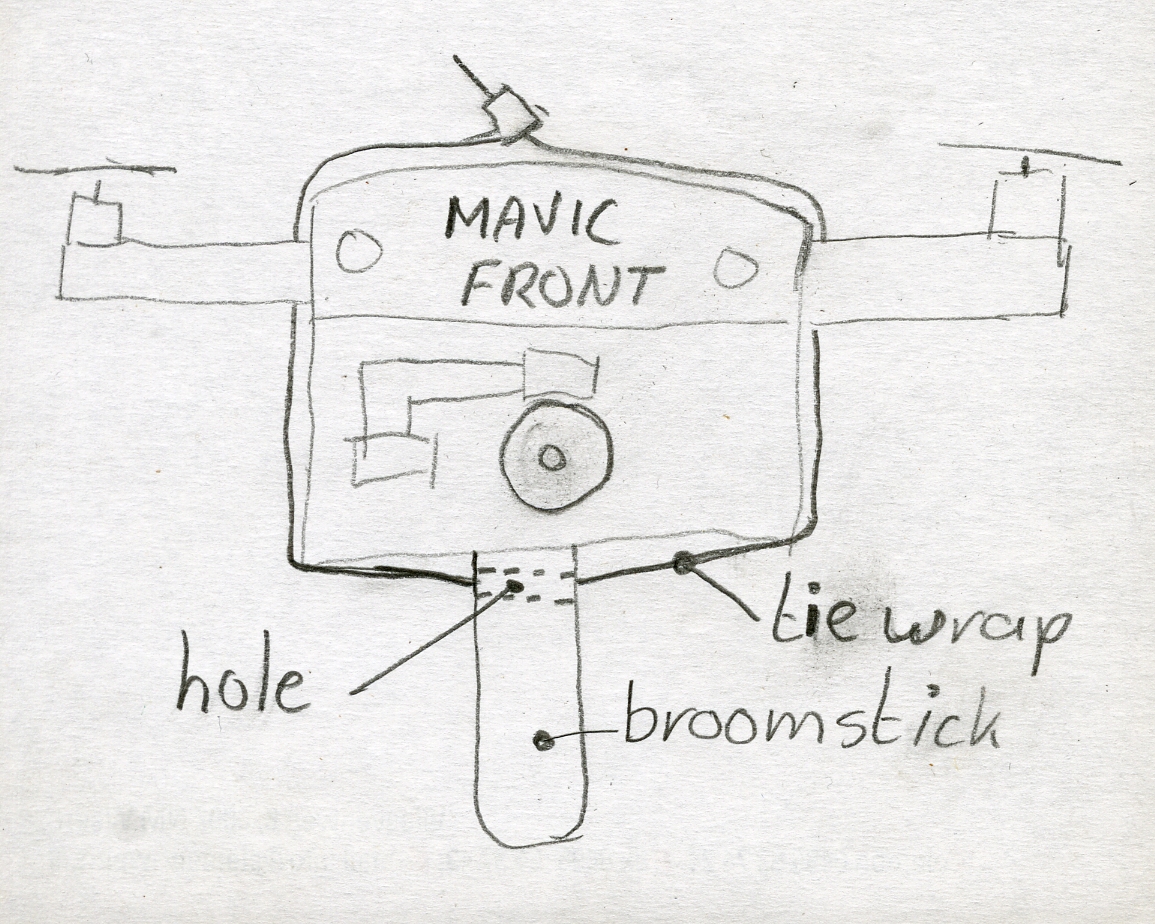 MAVIC
FRONT
tie wrap
hole
broomstick